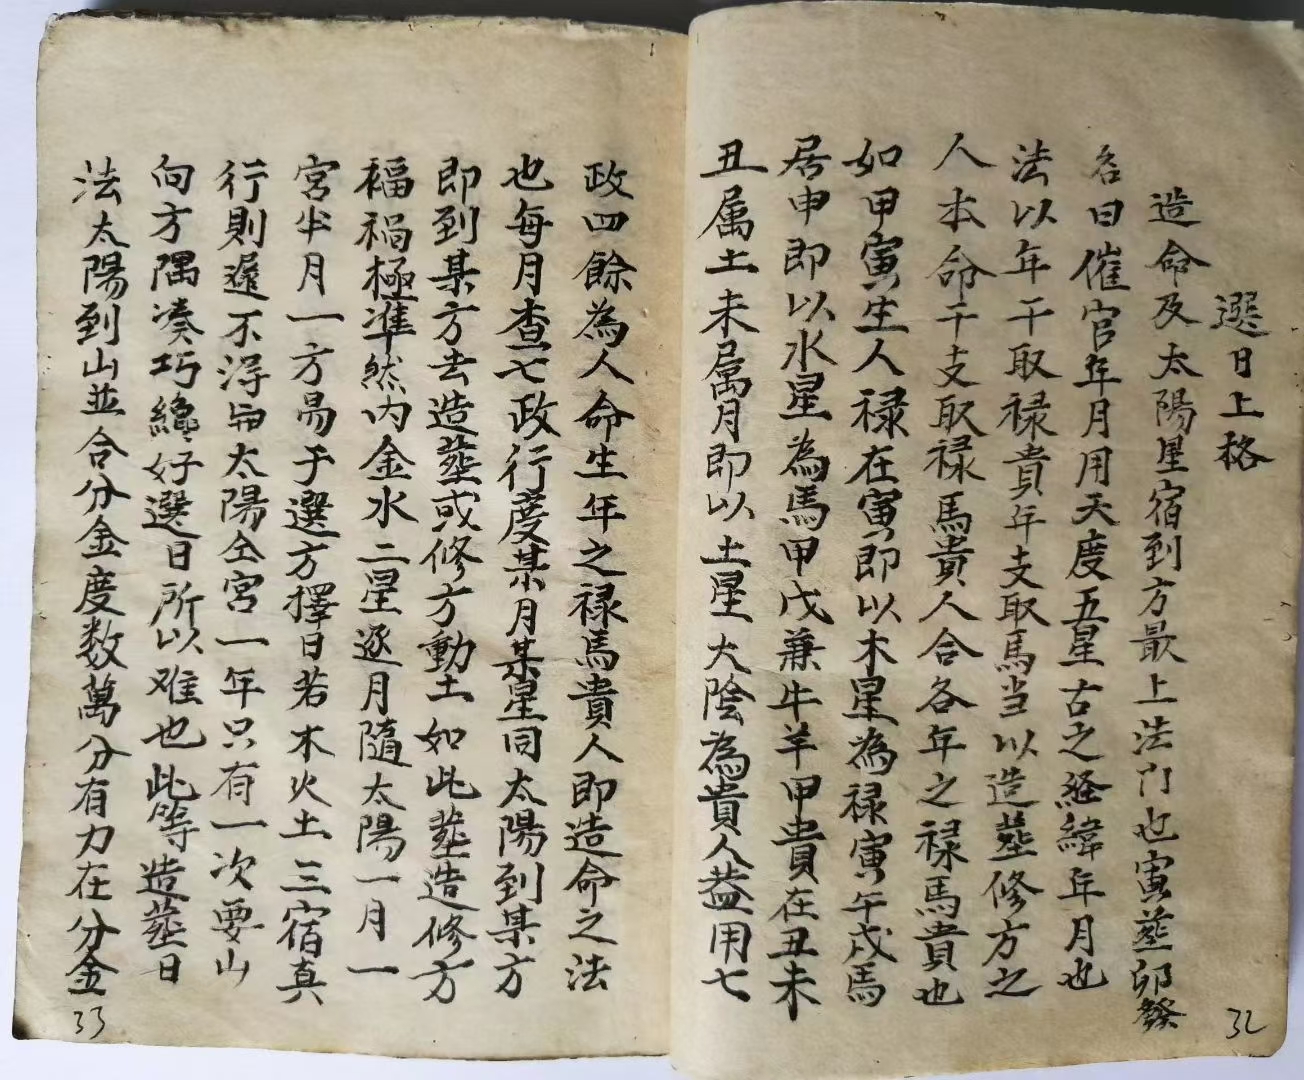 選日上格
造命及太陽星宿到方最上法门也寅塟卯發
名曰催官年月用天度五星古之経緯年月也
法以年干取禄貴年支取馬当以造塟修方之
人本命干支取禄馬貴人合各年之禄馬貴也
如甲寅生人禄在寅即以木星為禄寅午戌馬
居申即以水星為馬甲戊兼牛羊甲貴在丑未
丑属土未属月即以土星太陰為貴人葢用七
32
政四餘為人命生年之禄馬貴人即造命之法
也每月查七政行度某月某星同太陽到某方
即到某方去造塟或修方動土如此塟造修方
福禍極準然内金水二星逐月隨太陽一月一
宮半月一方易于選方擇日若木火土三宿真
行則遲不淂与太陽仝宮一年只有一次要山
向方隅凑巧纔好選日所以难也此等造塟日
法太陽到山並合分金度数萬分有力在分金
33